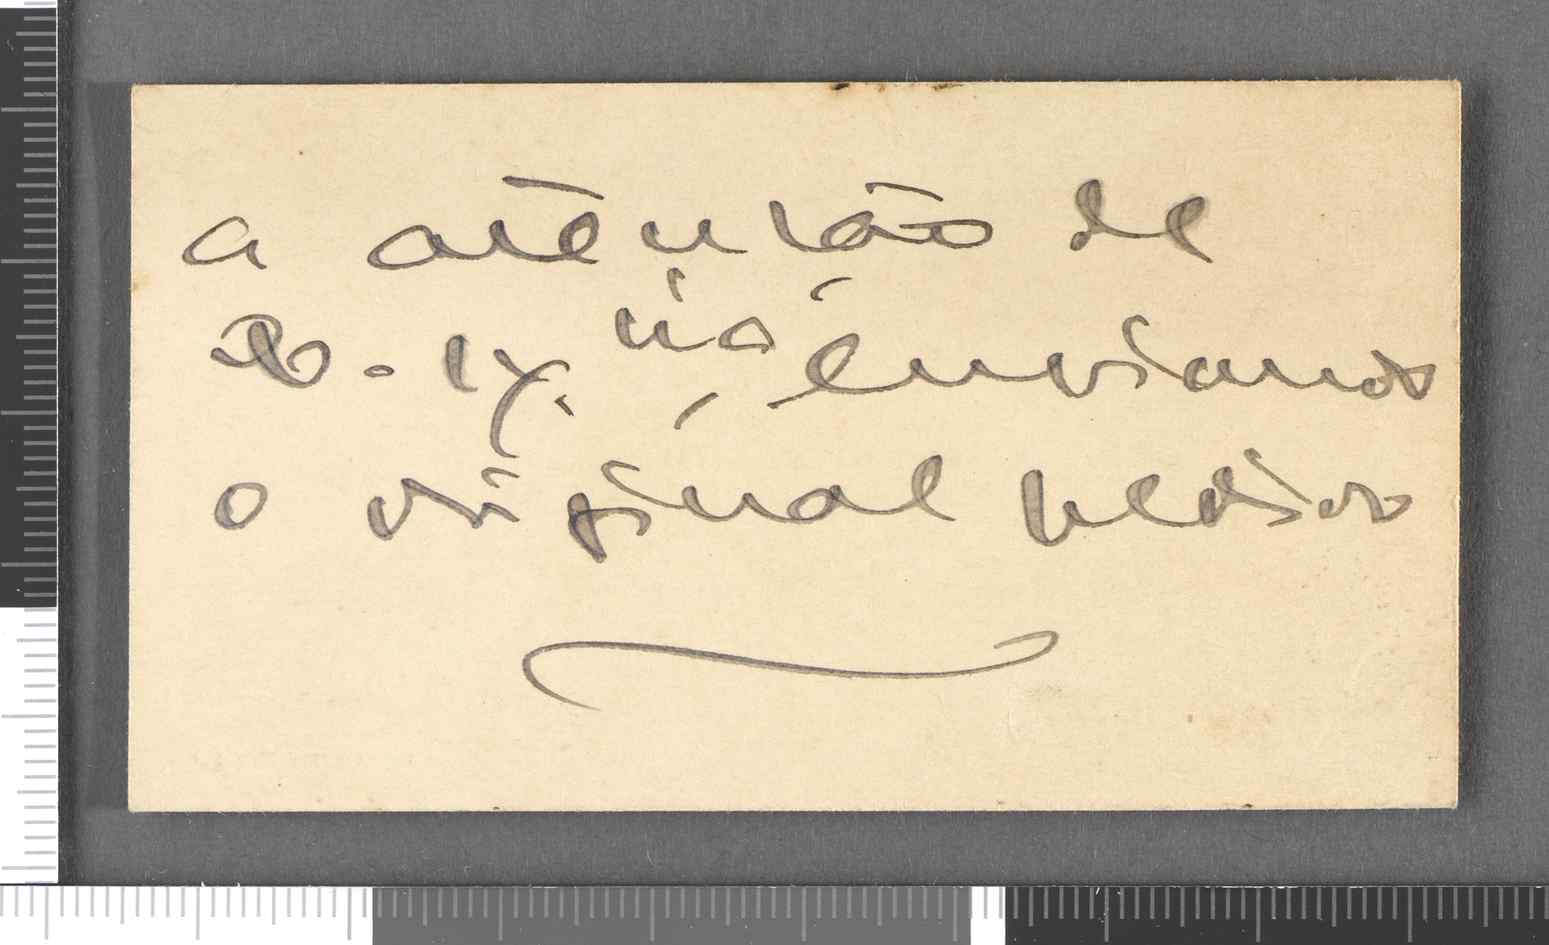 a atenção de
V. Ex.cia, enviando
o original pedido